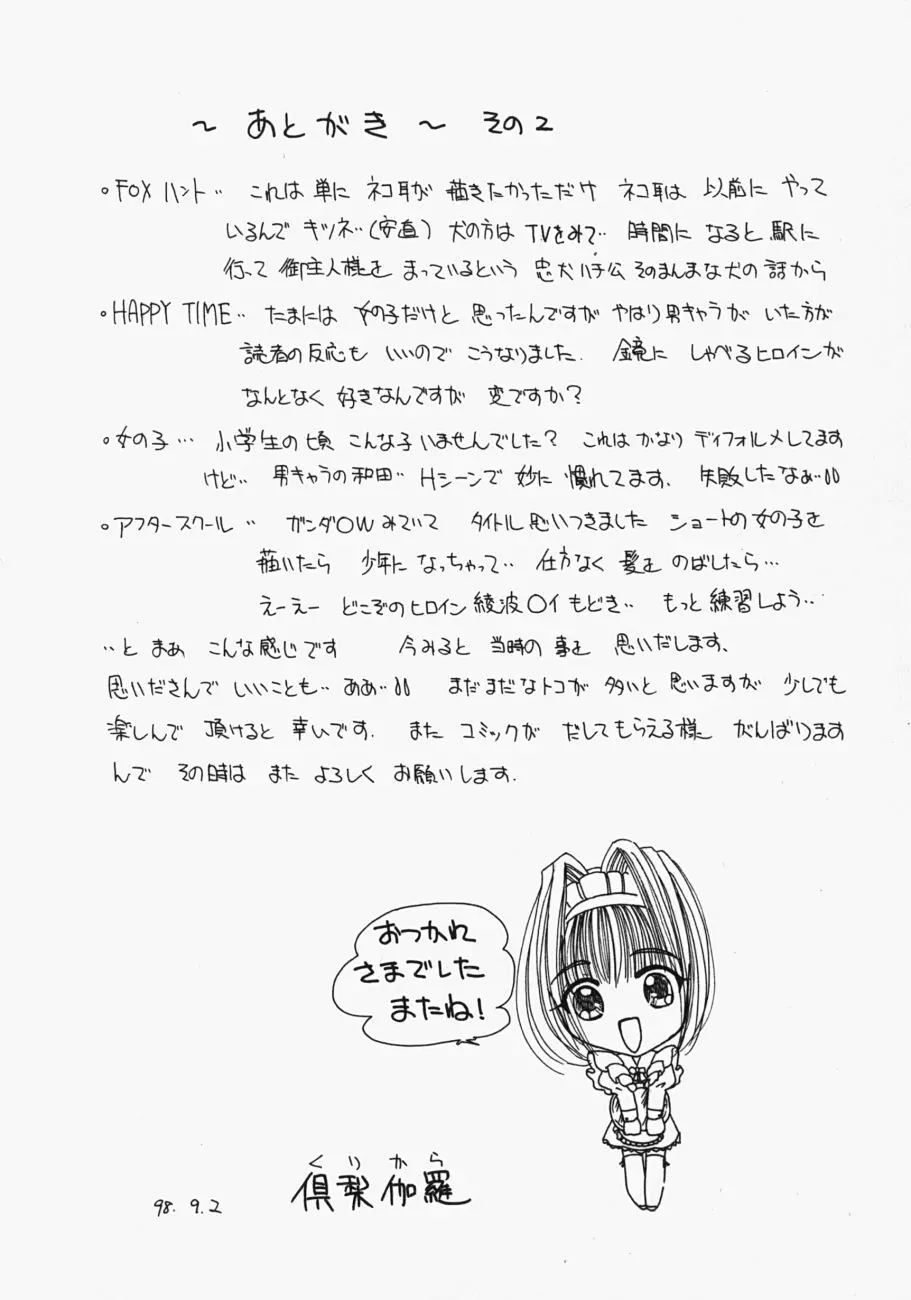 ～ あとがき ～ その2
○FOXハント‥ これは単に ネコ耳が 描きたかっただけ ネコ耳は 以前に やって
いるんで キツネ‥(安直) 犬の方は TVをみて‥ 時間に なると 駅に
行って 御主人様を まっているという 忠犬ハチ公 そのまんまな犬の話から
○HAPPY TIME‥ たまには 女の子だけと 思ったんですが やはり男キャラが いた方が
読者の反応も いいので こうなりました. 鏡に しゃべるヒロインが
なんとなく 好きなんですが 変ですか?
○女の子… 小学生の頃 こんな子いませんでした? これは かなり ディフォルメしてます
けど‥ 男キャラの和田‥ Hシーンで 妙に 慣れてます、 失敗したなぁ‥
○アフタースクール‥ ガンダ○W みていて タイトル思いつきました ショートの女の子を
描いたら 少年に なっちゃって‥ 仕方なく 髪を のばしたら…
えーえー どこぞのヒロイン 綾波○イもどき‥ もっと練習しよう‥
‥と まあ こんな感じです 今みると 当時の 事を 思いだします、
思いださんで いいことも‥ ああ‥ まだまだなトコが 多いと 思いますが 少しでも
楽しんで 頂けると 幸いです. また コミックが だしてもらえる様 がんばります
んで その時は また よろしく お願いします.
おつかれ
さまでした
またね!
くりから
倶梨伽羅
98. 9. 2